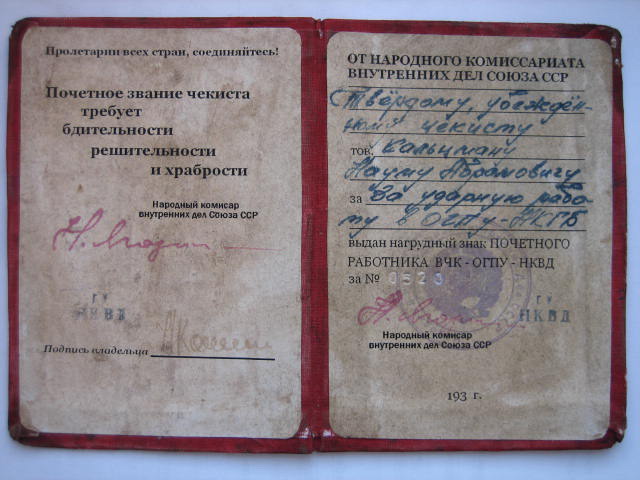 Пролетарии всех стран, соединяйтесь!
Почетное звание чекиста
требует
бдительности
решительности
и храбрости
Народный комисар
внутренних дел Союза ССР
ГУ
НКВД
Подпись владельца
ОТ НАРОДНОГО КОМИССАРИАТА
ВНУТРЕННИХ ДЕЛ СОЮЗА ССР
Твёрдому, убеждён-
ному чекисту
тов. Кальцману
Науму Абрамовичу
за За ударную рабо-
ту в ОГПУ-НКГБ
выдан нагрудный знак ПОЧЕТНОГО
РАБОТНИКА ВЧК - ОГПУ - НКВД
за № 0523
ГУ
НКВД
Народный комисар
внутренних дел Союза ССР
193 г.